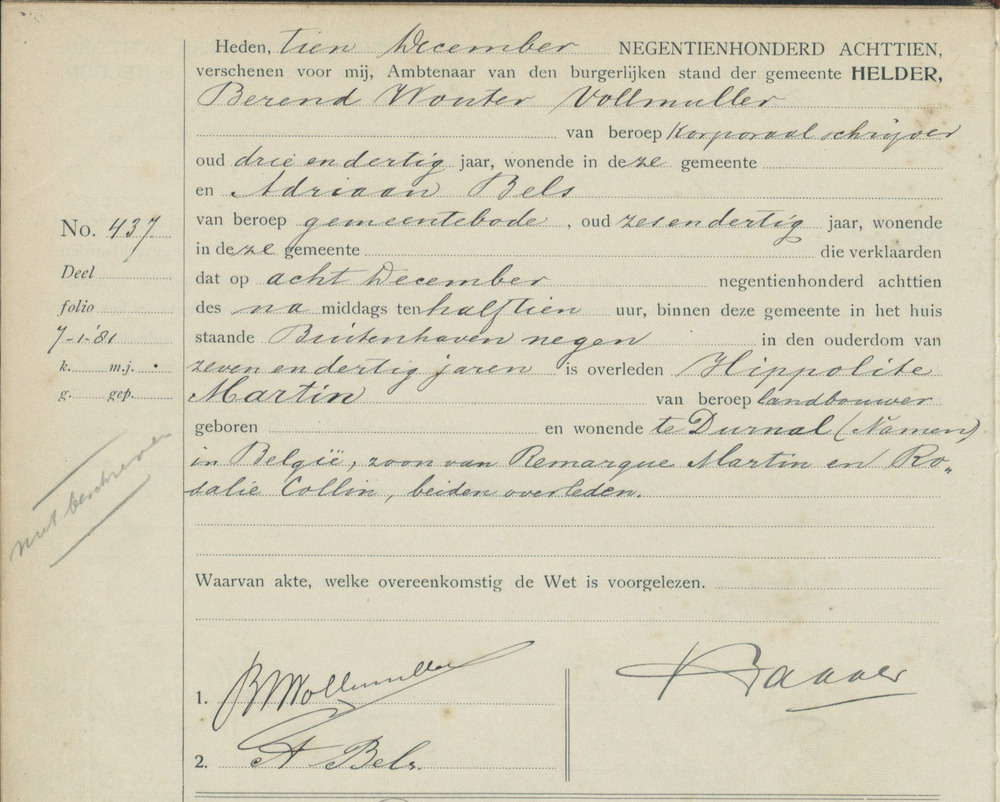 Heden, tien December NEGENTIENHONDERD ACHTTIEN,
verschenen voor mij, Ambtenaar van den burgerlijken stand der gemeente HELDER,
Berend Wouter Vollmuller
van beroep Korporaal schrijver
oud drie en dertig jaar, wonende in deze gemeente
en Adriaan Bels
van beroep gemeentebode, oud zesendertig jaar, wonende
in deze gemeente die verklaarden
dat op acht December negentienhonderd achttien
des na middags ten half tien uur, binnen deze gemeente in het huis
staande Buitenhaven negen in den ouderdom van
zeven en dertig jaren is overleden Hippolite
Martin van beroep landbouwer
geboren en wonende te Durnal (Namen)
in België, zoon van Remarque Martin en Ro„
salie Collin, beiden overleden.
Waarvan akte, welke overeenkomstig de Wet is voorgelezen.
1. BWVollmuller
2. A Bels.
No. 437
Deel
folio
7-1-'81
k. m.j.
g. gep.
niet beschreven